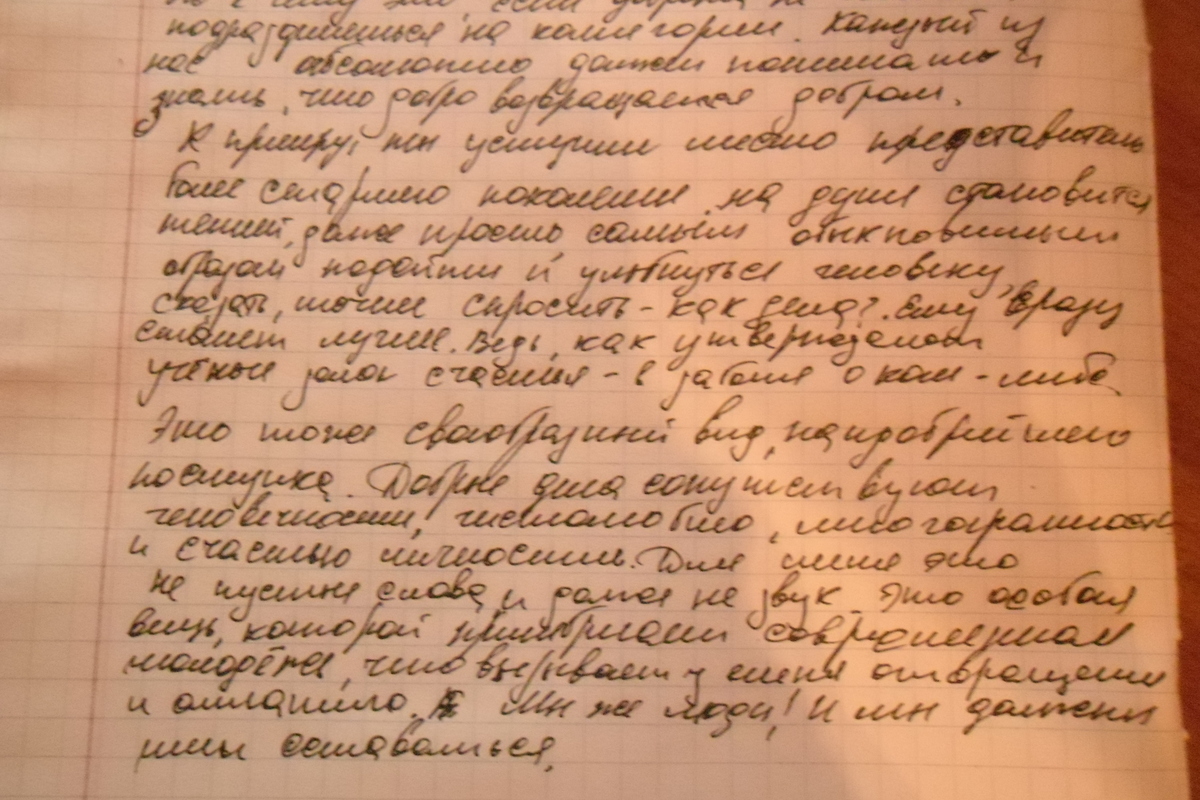 к чему это если доброта не
подраздляешься на категории. Каждый из
нас абсолютно должен понимать и
знать, что добро возвращается добром.
К примеру, ты уступил место представитель
более старшего поколения, на душе становится
теплей, даже просто самым обыкновенным
образом подойти и улыбнуться человеку,
сказать, точнее спросить - как дела?. Ему сразу
станет лучше. Ведь, как утверждают
учёные залог счастья - в заботе о ком-либо
Это тоже своеобразный вид, наидобрейшего
поступка. Добрые дела сопутствуют
человечности, честолюбию, многогранности
и счастью личности. Для меня это
не пустые слова и даже не звук. Это особая
вещь, которой пренебригает современная
молодёжь, что взывает у меня отвращение
и Мы же люди! И мы должны
ими оставаться.